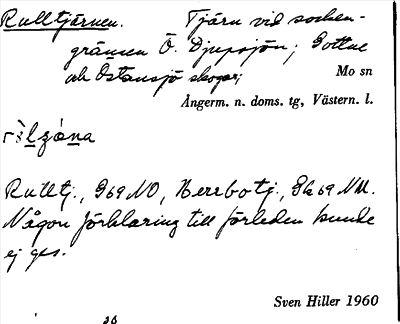 Rulltjärnen. Tjärn vid socken-
gränsen Ö. Djupsjön; Gottne
och Östansjö skogar;
Mo sn
Ångerm. n. doms. tg, Västern. l.
Rulltj., G69NO, Herrbotj., Gk69NV.
Någon förklaring till förleden kunde
ej ges.
Sven Hiller 1960